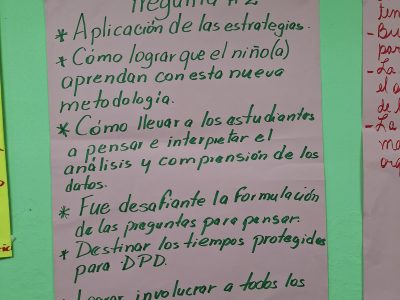 Pregunta #2
* Aplicación de las estrategias.
* Cómo lograr que el niño(a)
aprendan con esta nueva
metodología.
* Cómo llevar a los estudiantes
a pensar e interpretar el
análisis y comprensión de los
datos.
* Fue desafiante la formulación
de las preguntas para pensar.
* Destinar los tiempos protegidos
para DPD.
* Lograr involucrar a todos los
- La
el
de
- La